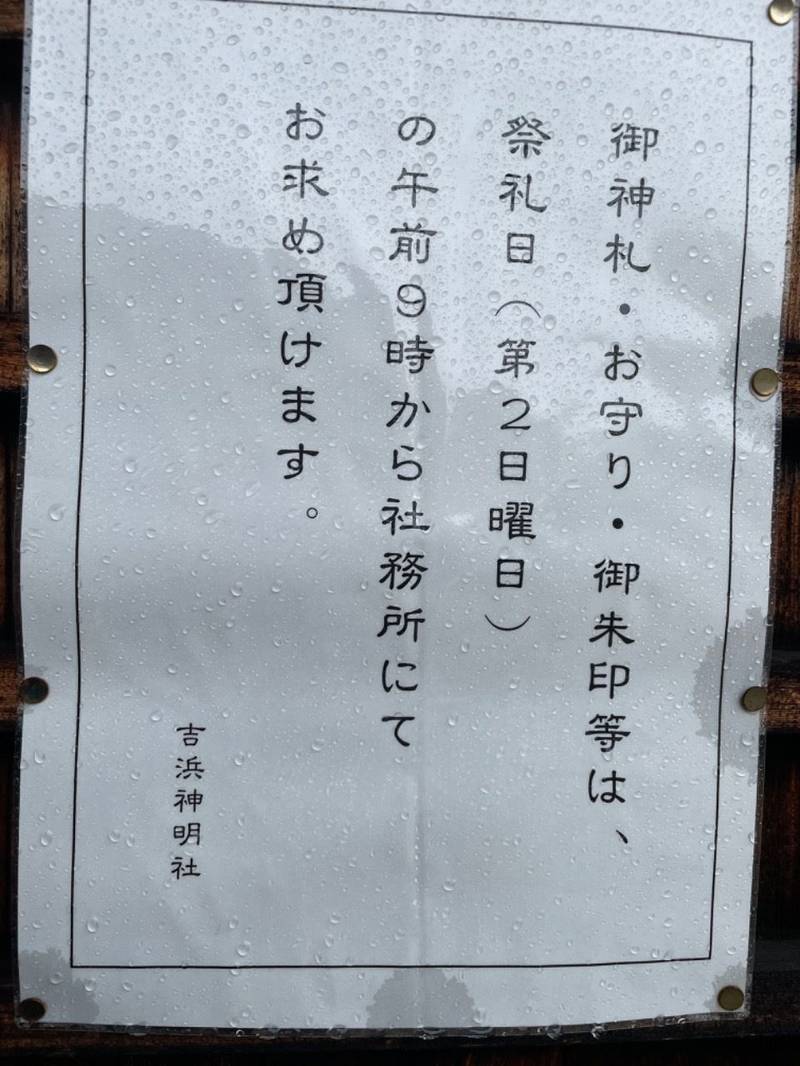 御神札・お守り・御朱印等は、
祭礼日（第２日曜日）
の午前９時から社務所にて
お求め頂けます。
吉浜神明社